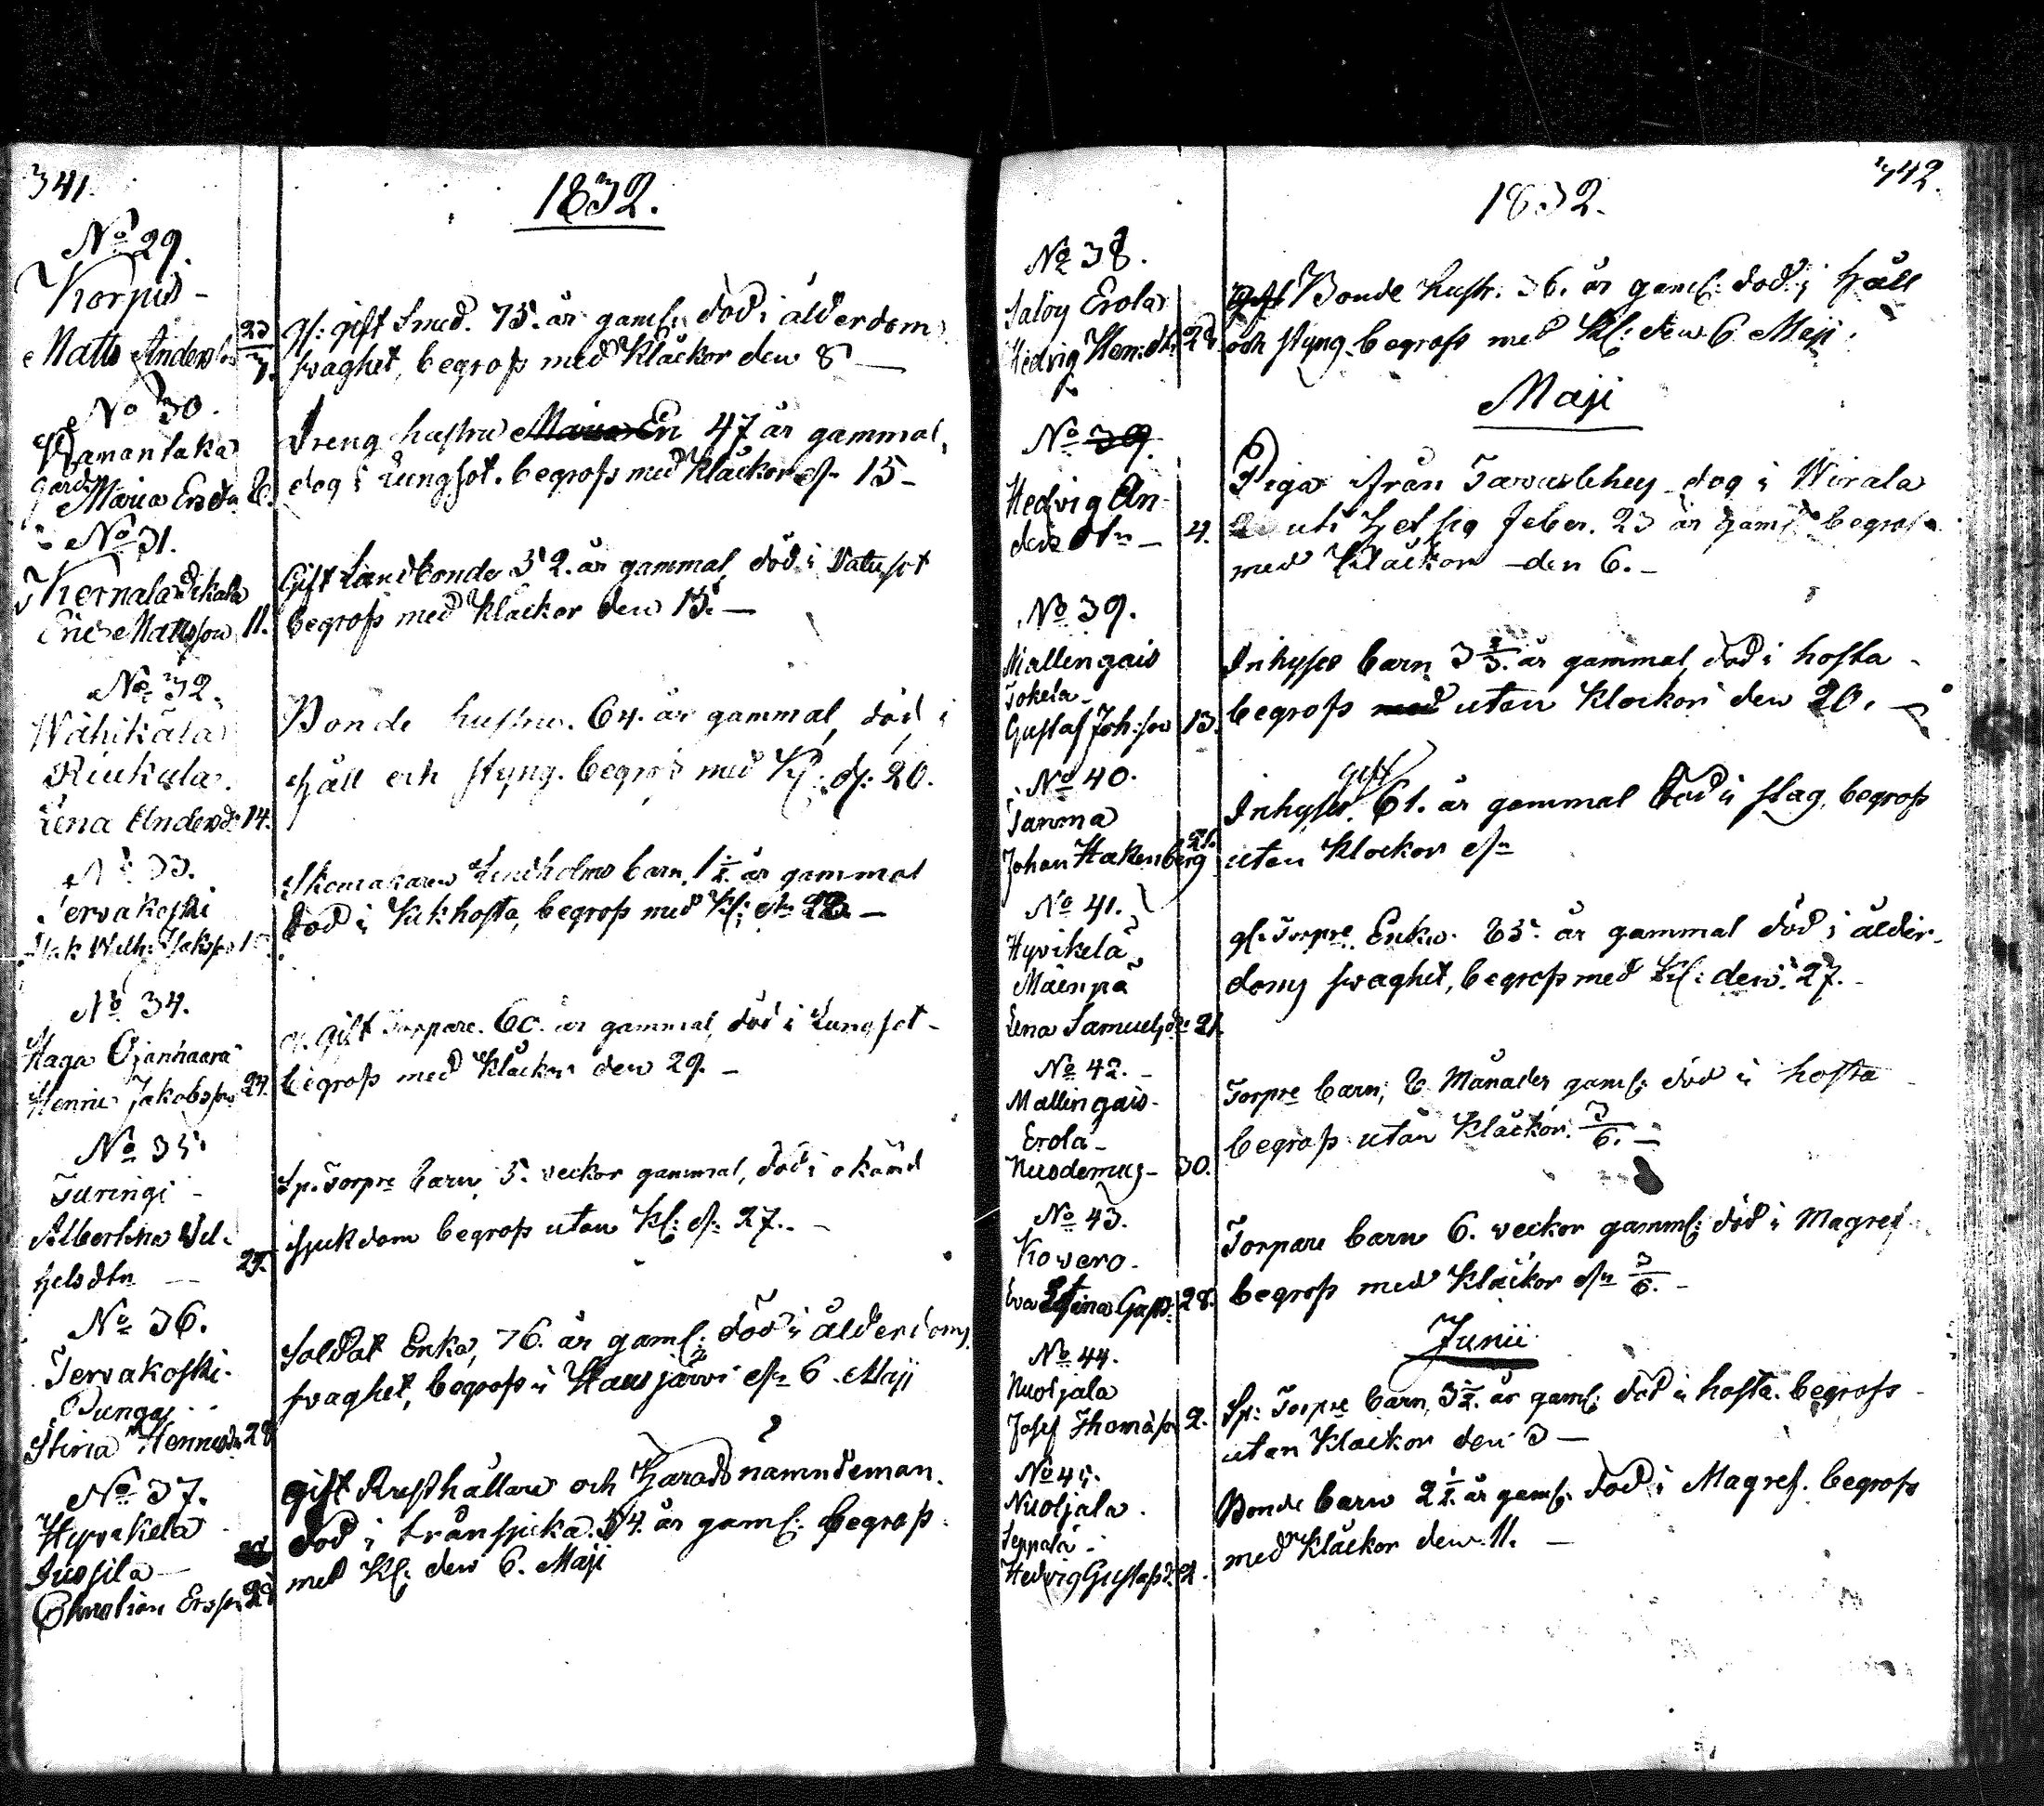 341.
1832.
No 29.
Korpis-
Matts Anderss 23/3. gl: gift Smed. 75. år gaml: död i ålderdoms
swaghet, begrofs med Klåckor den 8 —
No 30.
gård Maria Ersdr 8.
Dreng hustru 47 år gammal,
dog i Lungsot. begrofs med Klåckor dn 15-
No 31.
Kernala
Eric Mattsson 11.
Gift Landbonde 52. år gammal död i
begrofs med Klåckor den 15. —
No 32.
Wähikälä
Riukula.
Lena Andersd: 14.
Bonde hustru. 64. år gammal, död i
Håll och styng. begrofs med Kl: dn: 20.
No 33.
Tervakoski
Isak Wilh: Isakss
Skomakaren Lindholms barn, 1 1/2. år gammal
död i Kikhosta, begrofs med Kl: dn 22. —
No 34.
Haga Ojanhaara
Henric Jakobsson 24.
gl. gift Torpare. 60. år gammal, död i Lungsot-
begrofs med Klåckor den 29. -
No 35.
Turingi -
Albertina Wil-
helsdtn — 25.
Sp. Torpre barn, 5. veckor gammal, död i okänd
sjukdom begrofs utan Kl: dn 27. -
No 36.
Tervakoski.
Punga
Stina Hennersdr 28
Soldat Enka, 76. år gaml: död i ålderdoms
swaghet, begrofs i Hausjärvi dn 6. Maji
No 37.
Hyvikelä
Jussila —
Christian Ersson 28
gift Rusthållare och Härads nämndeman.
död i trånsjuka. 54. år gaml: begrofs
med Kl: den 6. Maji
342.
1832.
No 38.
Saloy Erola
Hedvig Hen:dr 28
Bonde hustr. 36. år gaml: död i Håll
och styng. begrofs med Kl: den 6 Maji.
Maji
No 39.
Hedvig An-
ders dtn — 4.
Piga ifrån Tavastehus dog i Wirala
uti Hetsig feber. 23 år gaml: begrofs
med Klåckor — den 6. -
No 39.
Mallingais
Tokela
Gustaf Joh:son 13.
Inhyses barn 3 2/3. år gammal, död i hosta -
begrofs med utan Klockor den 20. —
No 40.
Tanma
Johan Hakenberg 21.
gift
Inhyses. 61. år gammal död i slag, begrofs
utan Klockor dn
No 41.
Hyvikelä
Mäenpä
Lena Samuelsdr 21.
gl. Torpre Enka. 85. år gammal död i ålder-
doms swaghet, begrofs med Kl: den. 27. -
No 42. -
Mallingais-
Erola-
Nicodemus- 30.
Torpre barn, 8. Månader gaml: död i hosta
begrofs utan Klåckor. 3/6. —
No 43.
Kovero.
Eva Stina Gusts: 28.
Torpare barn 6. veckor gamml: död i Magref
begrofs med Klåckor dn 3/6. -
Junii
No 44.
Nuoljala
Josef Thomasson 2.
Sp: Torpre barn, 3 1/2. år gaml: död i hosta. begrofs
utan Klåckor den 3 —
No 45.
Nuoljala.
Seppälä -
Hedvig Gustafsd: 2.
Bonde barn 2 1/2. år gaml. död i Magref. begrofs
med Klåckor den 11. —